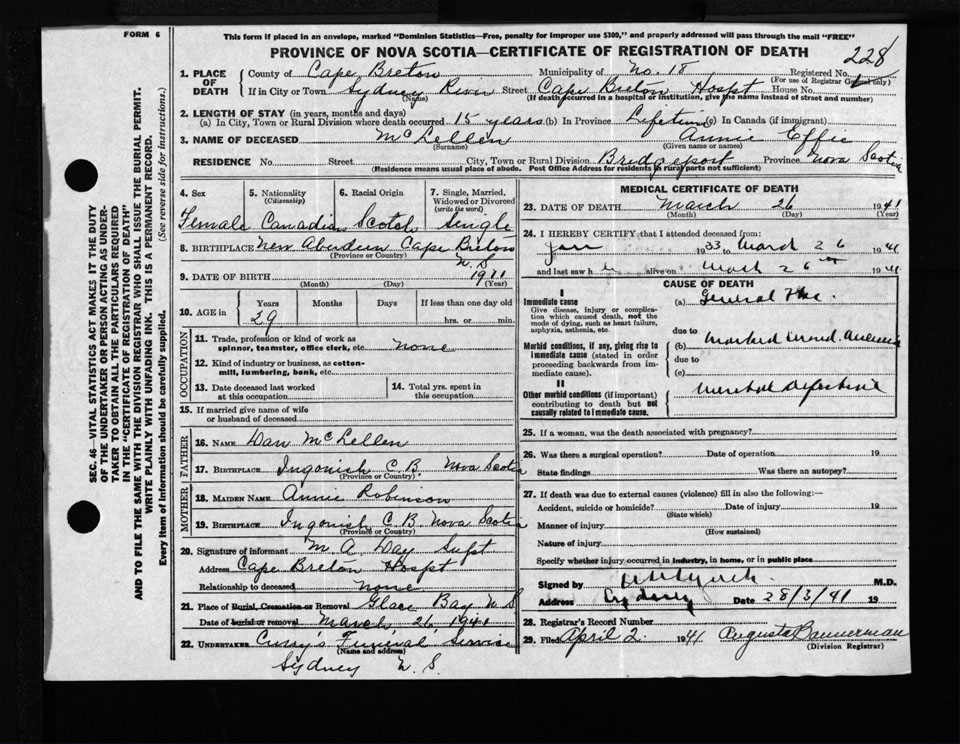 FORM 6
This form if placed in an envelope, marked "Dominion Statistics—Free, penalty for improper use $300," and properly addressed will pass through the mail "FREE"
PROVINCE OF NOVA SCOTIA—CERTIFICATE OF REGISTRATION OF DEATH
228
1. PLACE OF DEATH
County of Cape Breton Municipality of No. 18 Registered No.
(For use of Registrar General only)
If in City or Town Sydney River Street Cape Breton Hospt House No.
(Name) (If death occurred in a hospital or institution, give the name instead of street and number)
2. LENGTH OF STAY (in years, months and days)
(a) In City, Town or Rural Division where death occurred 15 years (b) In Province Lifetime (c) In Canada (if immigrant)
3. NAME OF DECEASED McLellen Annie Effie
(Surname) (Given name or names)
RESIDENCE No. Street City, Town or Rural Division Bridgeport Province Nova Scotia
(Residence means usual place of abode. Post Office Address for residents in rural parts not sufficient)
4. Sex
Female
5. Nationality
(Citizenship)
Canadian
6. Racial Origin
Scotch
7. Single, Married, Widowed or Divorced
(write the word)
Single
8. BIRTHPLACE New Aberdeen Cape Breton
(Province or Country) N.S
9. DATE OF BIRTH 1911
(Month) (Day) (Year)
10. AGE in
Years Months Days If less than one day old
29 hrs. or min.
OCCUPATION
11. Trade, profession or kind of work as spinner, teamster, office clerk, etc. none
12. Kind of industry or business, as cotton-mill, lumbering, bank, etc.
13. Date deceased last worked at this occupation
14. Total yrs. spent in this occupation
15. If married give name of wife or husband of deceased
FATHER
16. NAME Dan McLellen
17. BIRTHPLACE Ingonish C.B. Nova Scotia
(Province or Country)
MOTHER
18. MAIDEN NAME Annie Robinson
19. BIRTHPLACE Ingonish C.B. Nova Scotia
(Province or Country)
20. Signature of informant M. A. Day Supt
Address Cape Breton Hospt
Relationship to deceased none
21. Place of Burial, Cremation or Removal Glace Bay N S
Date of burial or removal March 26 1941
22. UNDERTAKER Curry's Funeral Service
(Name and address)
Sydney N. S.
MEDICAL CERTIFICATE OF DEATH
23. DATE OF DEATH March 26 1941
(Month) (Day) (Year)
24. I HEREBY CERTIFY that I attended deceased from:
Jan 1933 to March 26 1941
and last saw h er alive on March 26 1941
CAUSE OF DEATH
I
Immediate cause
Give disease, injury or complication which caused death, not the mode of dying, such as heart failure, asphyxia, asthenia, etc.
(a) General
due to
Morbid conditions, if any, giving rise to immediate cause (stated in order proceeding backwards from immediate cause).
(b) Marked
due to
(c)
II
Other morbid conditions (if important) contributing to death but not causally related to immediate cause.
Mental Defective
25. If a woman, was the death associated with pregnancy?
26. Was there a surgical operation? Date of operation 19
State findings Was there an autopsy?
27. If death was due to external causes (violence) fill in also the following:—
Accident, suicide or homicide? Date of injury 19
(State which)
Manner of injury
(How sustained)
Nature of injury
Specify whether injury occurred in industry, in home, or in public place
Signed by M.D.
Address Sydney Date 28/3/41 19
28. Registrar's Record Number
29. Filed April 2 1941 Augusta Bannerman
(Division Registrar)
SEC. 46—VITAL STATISTICS ACT MAKES IT THE DUTY
OF THE UNDERTAKER OR PERSON ACTING AS UNDER-
TAKER TO OBTAIN ALL THE PARTICULARS REQUIRED
IN THE "CERTIFICATE OF REGISTRATION OF DEATH"
AND TO FILE THE SAME WITH THE DIVISION REGISTRAR WHO SHALL ISSUE THE BURIAL PERMIT.
WRITE PLAINLY WITH UNFADING INK. THIS IS A PERMANENT RECORD.
Every item of information should be carefully supplied. (See reverse side for instructions.)